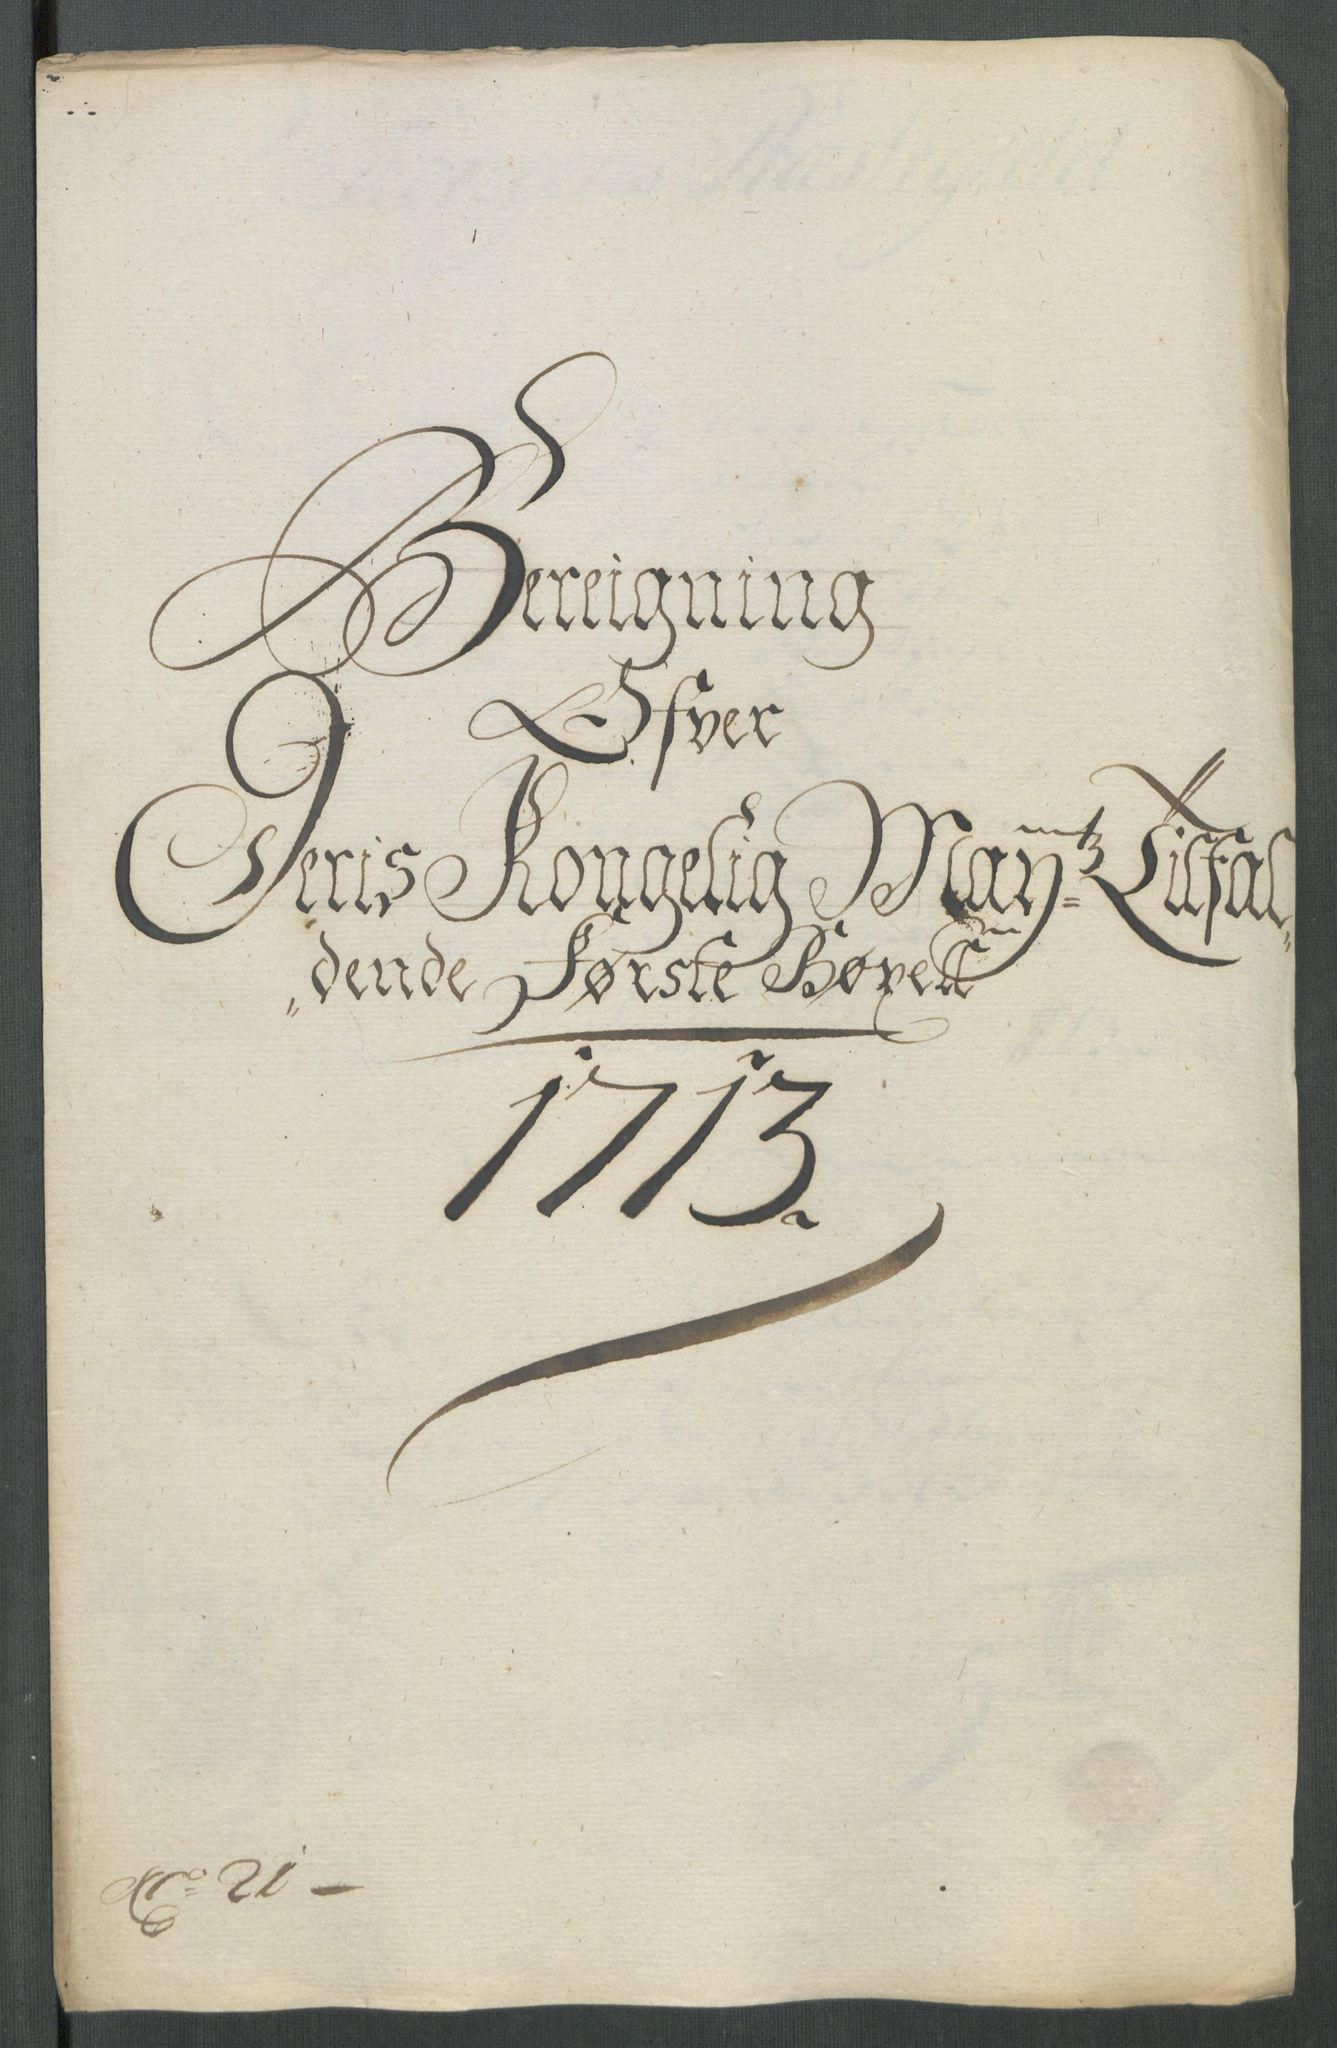 Bereigning
Ofver
Deris Kongelig May.tz Tilfal„
„dende Første Bøxell
1713.
No. 21 —